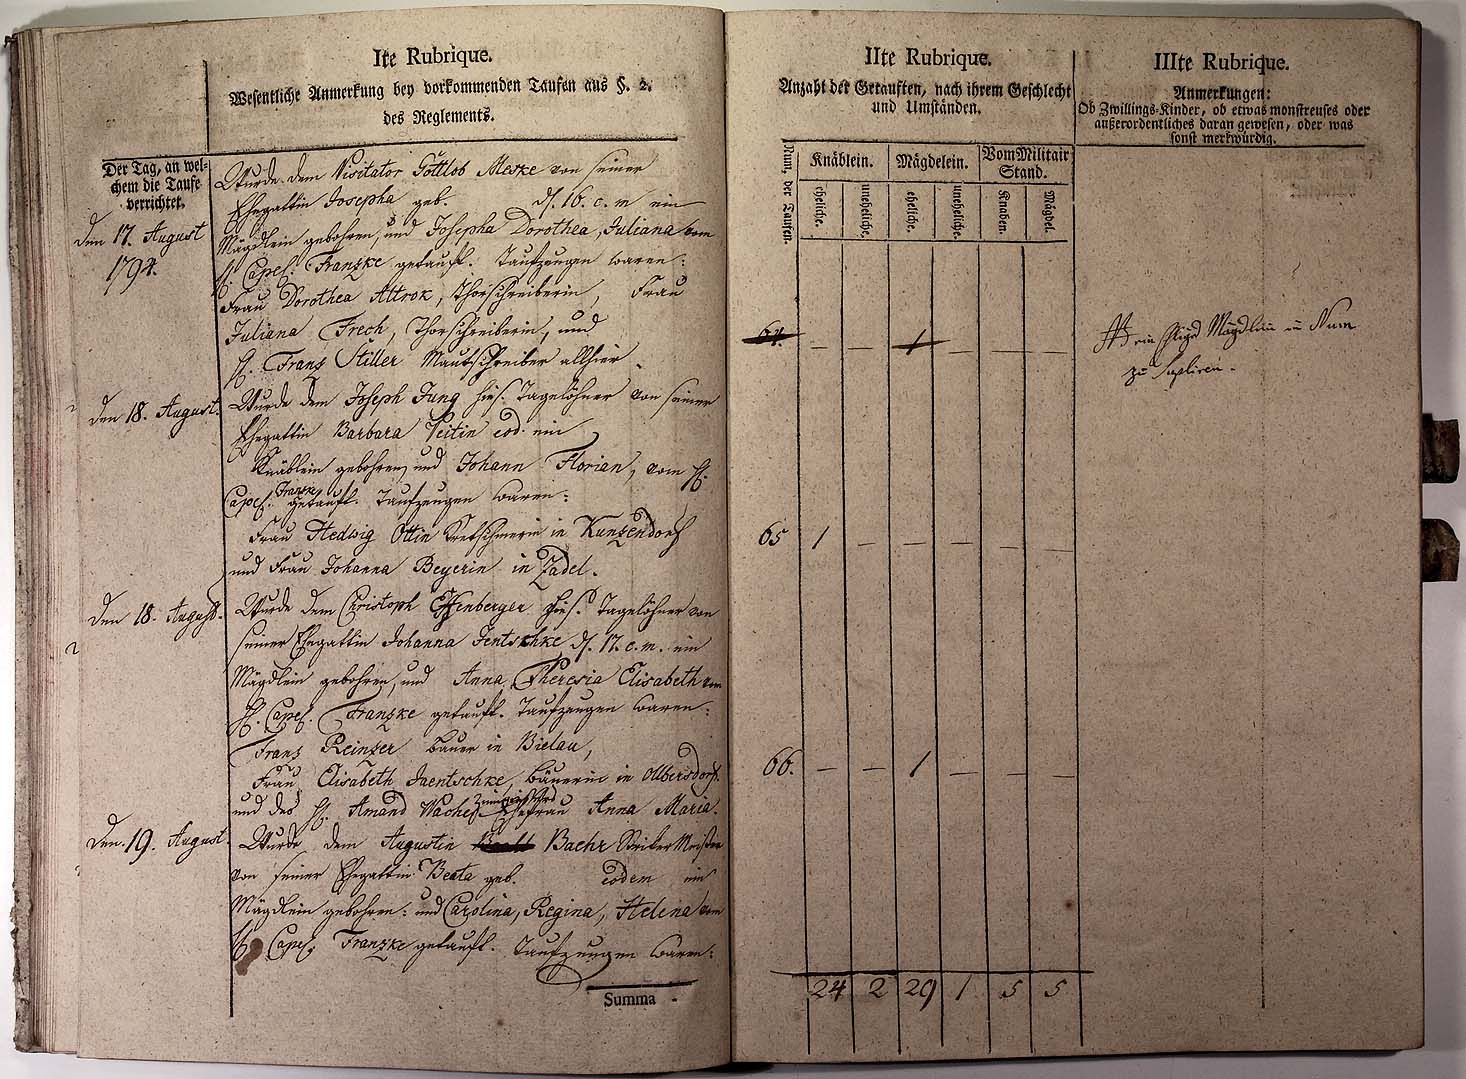 Ite Rubrique.
Wesentliche Anmerkung bey vorkommenden Taufen aus §. 2.
des Reglements.
Der Tag, an wel-
chem die Taufe
verrichtet.
den 17. August
1794.
Wurde dem Visitator Gottlob Meske von seiner
Ehegattin Josepha geb. d. 16. c. m ein
Mägdlein gebohren, und Josepha Dorothea, Juliana vom
H. Capel. Franzke getauft. Taufzeugen waren:
Frau Dorothea Attrok, Thorschreiberin, Frau
Juliana Frech, Thorschreiberin, und
H. Franz Stiller Mautschreiber allhier.
den 18. August.
Wurde dem Joseph Jung hies. Tagelöhner von seiner
Ehegattin Barbara Veitin eod. ein
Knäblein gebohren, und Johann Florian, vom H.
Capel. Franzke getauft. Taufzeugen waren:
Frau Hedwig Ottin Kretschmerin in Kunzendorf
und Frau Johanna Beyerin in Zadel.
den 18. August.
Wurde dem Christoph Effenberger hies. Tagelöhner von
seiner Ehegattin Johanna Jentschke d. 17. c. m. ein
Mägdlein gebohren, und Anna Theresia Elisabeth vom
H. Capel. Franzke getauft. Taufzeugen waren:
Franz Reinzer Bauer in Bielau,
Frau Elisabeth Jaentschke, Bäuerin in Olbersdorf.
und des H. Amand Wache Ehefrau Anna Maria.
den. 19. August.
Wurde dem Augustin Baehr Striker Meister
von seiner Ehegattin Beata geb. eodem ein
Mägdlein gebohren: und Carolina, Regina, Helena vom
H. Capel. Franzke getauft. Taufzeugen waren:
Summa
IIte Rubrique.
Anzahl der Getauften, nach ihrem Geschlecht
und Umständen.
Num. der Taufen.
Knäblein.
Mägdelein.
Vom Militair
Stand.
eheliche.
uneheliche.
eheliche.
uneheliche.
Knaben.
Mägdel.
64. – – 1 – – –
65 1 – – – – –
66. – – 1 – – –
24 2 29 1 5 5
IIIte Rubrique.
Anmerkungen:
Ob Zwillings-Kinder, ob etwas monstreuses oder
außerordentliches daran gewesen, oder was
sonst merkwürdig.
ein Mägdlein in Num
zu